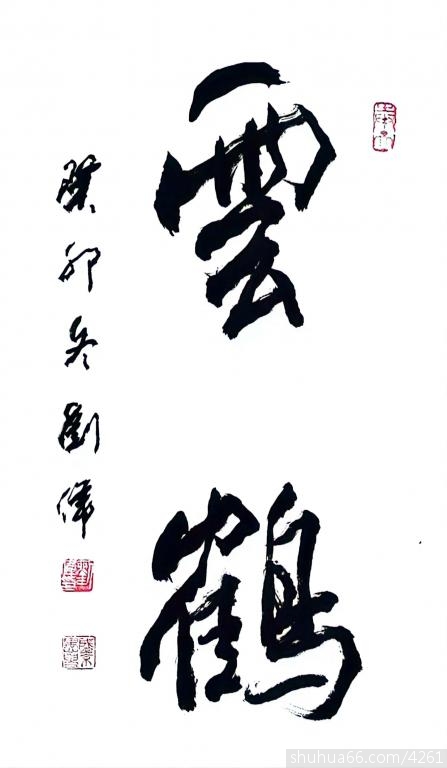 雲鶴
癸卯冬劉偉
shuhua66.com/4261